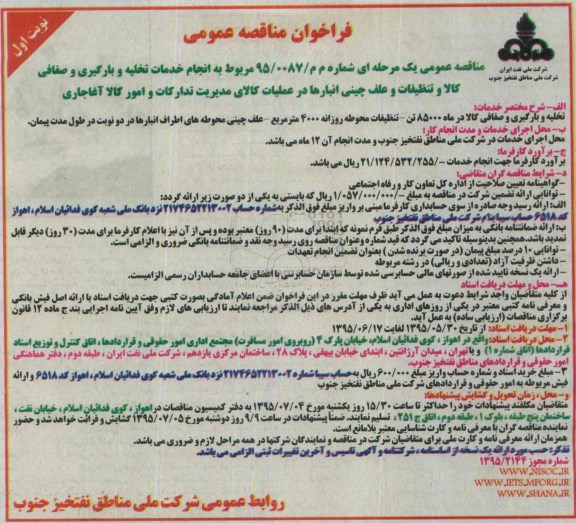 نوبت اول
فراخوان مناقصه عمومی
شرکت ملی نفت ایران
شرکت ملی مناطق نفتخیز جنوب
مناقصه عمومی یک مرحله ای شماره م م/۹۵/۰۰۸۷ مربوط به انجام خدمات تخلیه و بارگیری و صفافی
کالا و تنظیفات و علف چینی انبارها در عملیات کالای مدیریت تدارکات و امور کالا آغاجاری
الف- شرح مختصر خدمات:
تخلیه و بارگیری و صفافی کالا در ماه ۸۵۰۰۰ تن - تنظیفات محوطه روزانه ۴۰۰۰ مترمربع - علف چینی محوطه های اطراف انبارها در دو نوبت در طول مدت پیمان.
ب- محل اجرای خدمات و مدت انجام کار:
محل اجرای خدمات در شرکت ملی مناطق نفتخیز جنوب و مدت انجام آن ۱۲ ماه می باشد.
ج- برآورد کارفرما:
برآورد کارفرما جهت انجام خدمات ۲۱/۱۲۴/۵۳۲/۲۵۵/- ریال می باشد.
د- شرایط مناقصه گران متقاضی:
- گواهینامه تعیین صلاحیت از اداره کل تعاون کار و رفاه اجتماعی
- توانایی ارائه تضمین شرکت در مناقصه به مبلغ ۱/۰۵۷/۰۰۰/۰۰۰/- ریال که بایستی به یکی از دو صورت زیر ارائه گردد:
الف: ارائه رسید وجه صادره از سوی حسابداری کارفرما مبنی بر واریز مبلغ فوق الذکر به شماره حساب ۲۱۷۴۶۵۲۲۱۳۰۰۲ نزد بانک ملی شعبه کوی فدائیان اسلام، اهواز
کد ۶۵۱۸ حساب سیبا بنام شرکت ملی مناطق نفتخیز جنوب
ب: ارائه ضمانتنامه بانکی به میزان مبلغ فوق الذکر طبق فرم نمونه که ابتدا برای مدت (۹۰ روز) معتبر بوده و پس از آن نیز با اعلام کارفرما برای مدت (۳۰ روز) دیگر قابل
تمدید باشد. همچنین بدینوسیله تاکید می گردد که قید شماره و عنوان مناقصه روی رسید وجه نقد و ضمانتنامه بانکی ضروری و الزامی است.
- توانایی ۱۰ درصد مبلغ پیمان (در صورت برنده شدن) بعنوان تضمین انجام تعهدات
- داشتن ظرفیت آزاد (تعدادی و ریالی) در رشته مربوطه
- ارائه یک نسخه تایید شده از صورتهای مالی حسابرسی شده توسط سازمان حسابرسی با اعضای جامعه حسابداران رسمی الزامیست.
هـ- محل و مهلت دریافت اسناد
از کلیه متقاضیان واجد شرایط دعوت به عمل می آید ظرف مهلت مقرر در این فراخوان ضمن اعلام آمادگی بصورت کتبی جهت دریافت اسناد با ارائه اصل فیش بانکی
و معرفی نامه کتبی معتبر در یکی از روزهای اداری به یکی از آدرس های ذیل الذکر مراجعه نمایند تا ارزیابی های لازم وفق آیین نامه اجرایی بند ج ماده ۱۲ قانون
برگزاری مناقصات (ارزیابی ساده) به عمل آید.
۱- مهلت دریافت اسناد: از تاریخ ۱۳۹۵/۰۵/۳۰ لغایت ۱۳۹۵/۰۶/۱۷
۲- محل دریافت اسناد: واقع در اهواز، کوی فدائیان اسلام، خیابان پارک ۴ (روبروی امور مسافرت) مجتمع اداری امور حقوقی و قراردادها، اتاق کنترل و توزیع اسناد
قراردادها (اتاق شماره ۱) و یا تهران، میدان آرژانتین، ابتدای خیابان بیهقی، پلاک ۲۸، ساختمان مرکزی یازدهم، شرکت ملی نفت ایران، طبقه دوم، دفتر هماهنگی
امور حقوقی و قراردادهای شرکت ملی مناطق نفتخیز جنوب.
۳- مبلغ خرید اسناد و شماره حساب واریز مبلغ ۶۰۰/۰۰۰ ریال به حساب سیبا شماره ۲۱۷۴۶۵۲۲۱۳۰۰۲ نزد بانک ملی شعبه کوی فدائیان اسلام، اهواز کد ۶۵۱۸ و ارائه
فیش مربوطه به امور حقوقی و قراردادهای شرکت ملی مناطق نفتخیز جنوب
و- محل، زمان تحویل و گشایش پیشنهادها:
متقاضیان مکلفند پیشنهادات خود را حداکثر تا ساعت ۱۵/۳۰ روز یکشنبه مورخ ۱۳۹۵/۰۷/۰۴ به دفتر کمیسیون مناقصات در اهواز، کوی فدائیان اسلام، خیابان نفت،
ساختمان پنج طبقه، بلوک ۱، طبقه دوم، اتاق ج ۲۵۱، تسلیم نمایند. ضمنا پیشنهادات در ساعت ۹/۹ روز دوشنبه مورخ ۱۳۹۵/۰۷/۰۵ گشایش و قرائت خواهد شد و حضور
نماینده مناقصه گران با معرفی نامه و کارت شناسایی معتبر بلامانع است.
همزمان ارائه معرفی نامه و کارت ملی برای متقاضیان شرکت در مناقصه و نمایندگان شرکتها در همه مراحل لازم و ضروری می باشد.
تذکر: حسب مورد ارائه یک نسخه از اساسنامه، شرکتنامه و آگهی تاسیس و آخرین تغییرات ثبتی الزامی می باشد.
شماره مجوز ۱۳۹۵/۲۱۴۴
WWW.NISOC.IR
WWW.IETS.MPORG.IR
WWW.SHANA.IR
روابط عمومی شرکت ملی مناطق نفتخیز جنوب